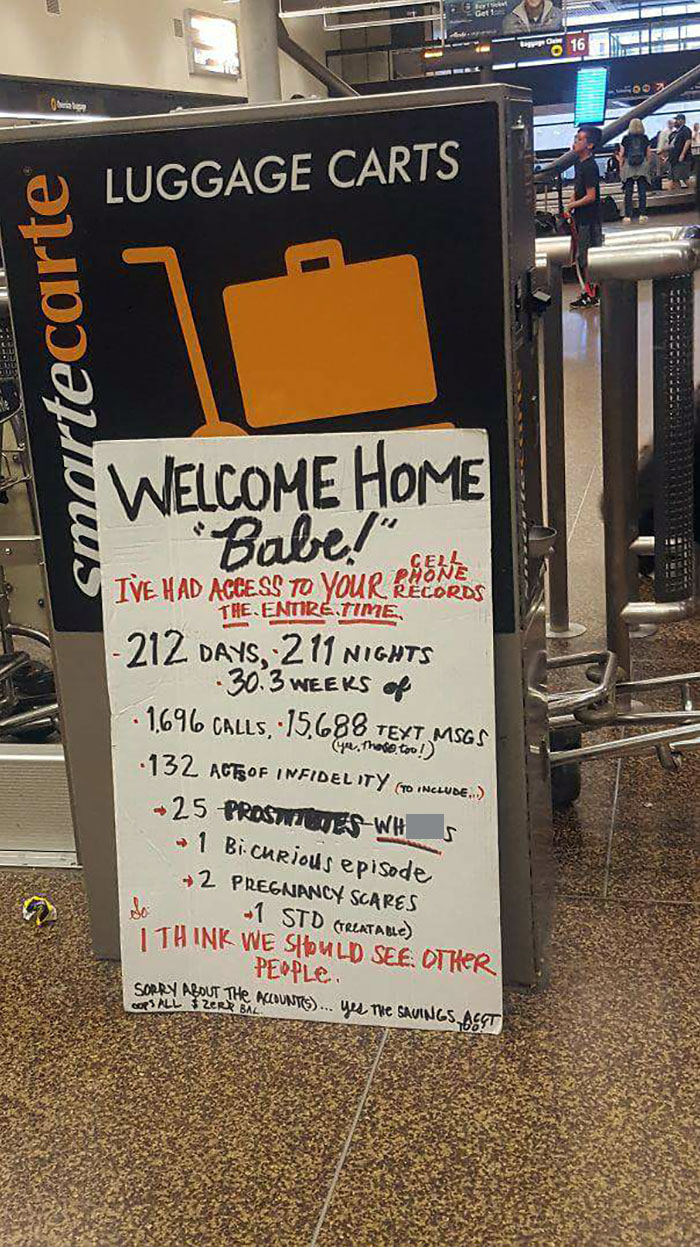 Baggage Claim
16
LUGGAGE CARTS
smartecarte
WELCOME HOME
"Babe!"
I'VE HAD ACCESS TO YOUR CELL PHONE RECORDS
THE ENTIRE TIME.
-212 DAYS, ·211 NIGHTS
·30.3 WEEKS of
·1,696 CALLS, ·15,688 TEXT MSGS
(yes, those too!)
·132 ACTS OF INFIDELITY (TO INCLUDE...)
→25 PROSTITUTES WH S
→1 Bi.curious episode
→2 PREGNANCY SCARES
→1 STD (TREATABLE)
So:
I THINK WE SHOULD SEE OTHER
PEOPLE.
SORRY ABOUT THE ACCOUNT(S)... yes THE SAVINGS ACCT
OOPS ALL $ ZERO BAL. TOO!